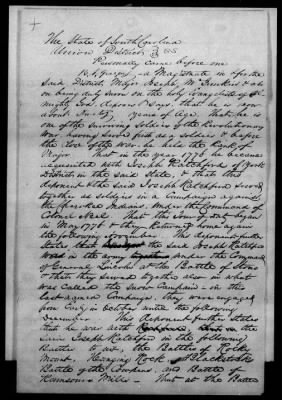 The State of South Carolina
Union District SS
Personally came before me
B. F. Gregory, a Magistrate in & for the
said District, Major Joseph McJunkin & who
on being duly sworn on the Holy Evangelists of Al-
mighty God, deposes & says that he is now
about Ninety years of age, that he is
one of the surviving Soldiers of the Revolutionary
War, having served first as a Soldier & before
the close of the War, he held the Rank of
Major. That in the year 1776 he became
acquainted with Joseph Ratchford of York
District in the said State, & that this
deponent & the said Joseph Ratchford served
together as Soldiers in a Campaign against
the Cherokee Indians, under the command of
Colonel Neel. That this Tour of duty began
in May 1776 & they returned home again
the following November. This deponent further
states that the said Joseph Ratchford
was in the army together under the Command
of General Lincoln at the Battle of Stono
& that they served together also in what
was called the Snow Campaign - in this
last named Campaign, they were engaged
from Early in October until the following
December. This deponent further states
that he was with
said Joseph Ratchford in the following
Battles to wit, the Battles of Rocky
Mount, Hanging Rock, Blackstocks
Battle of the Cowpens, and Battle of
Ramsours Mills - That at the Battle